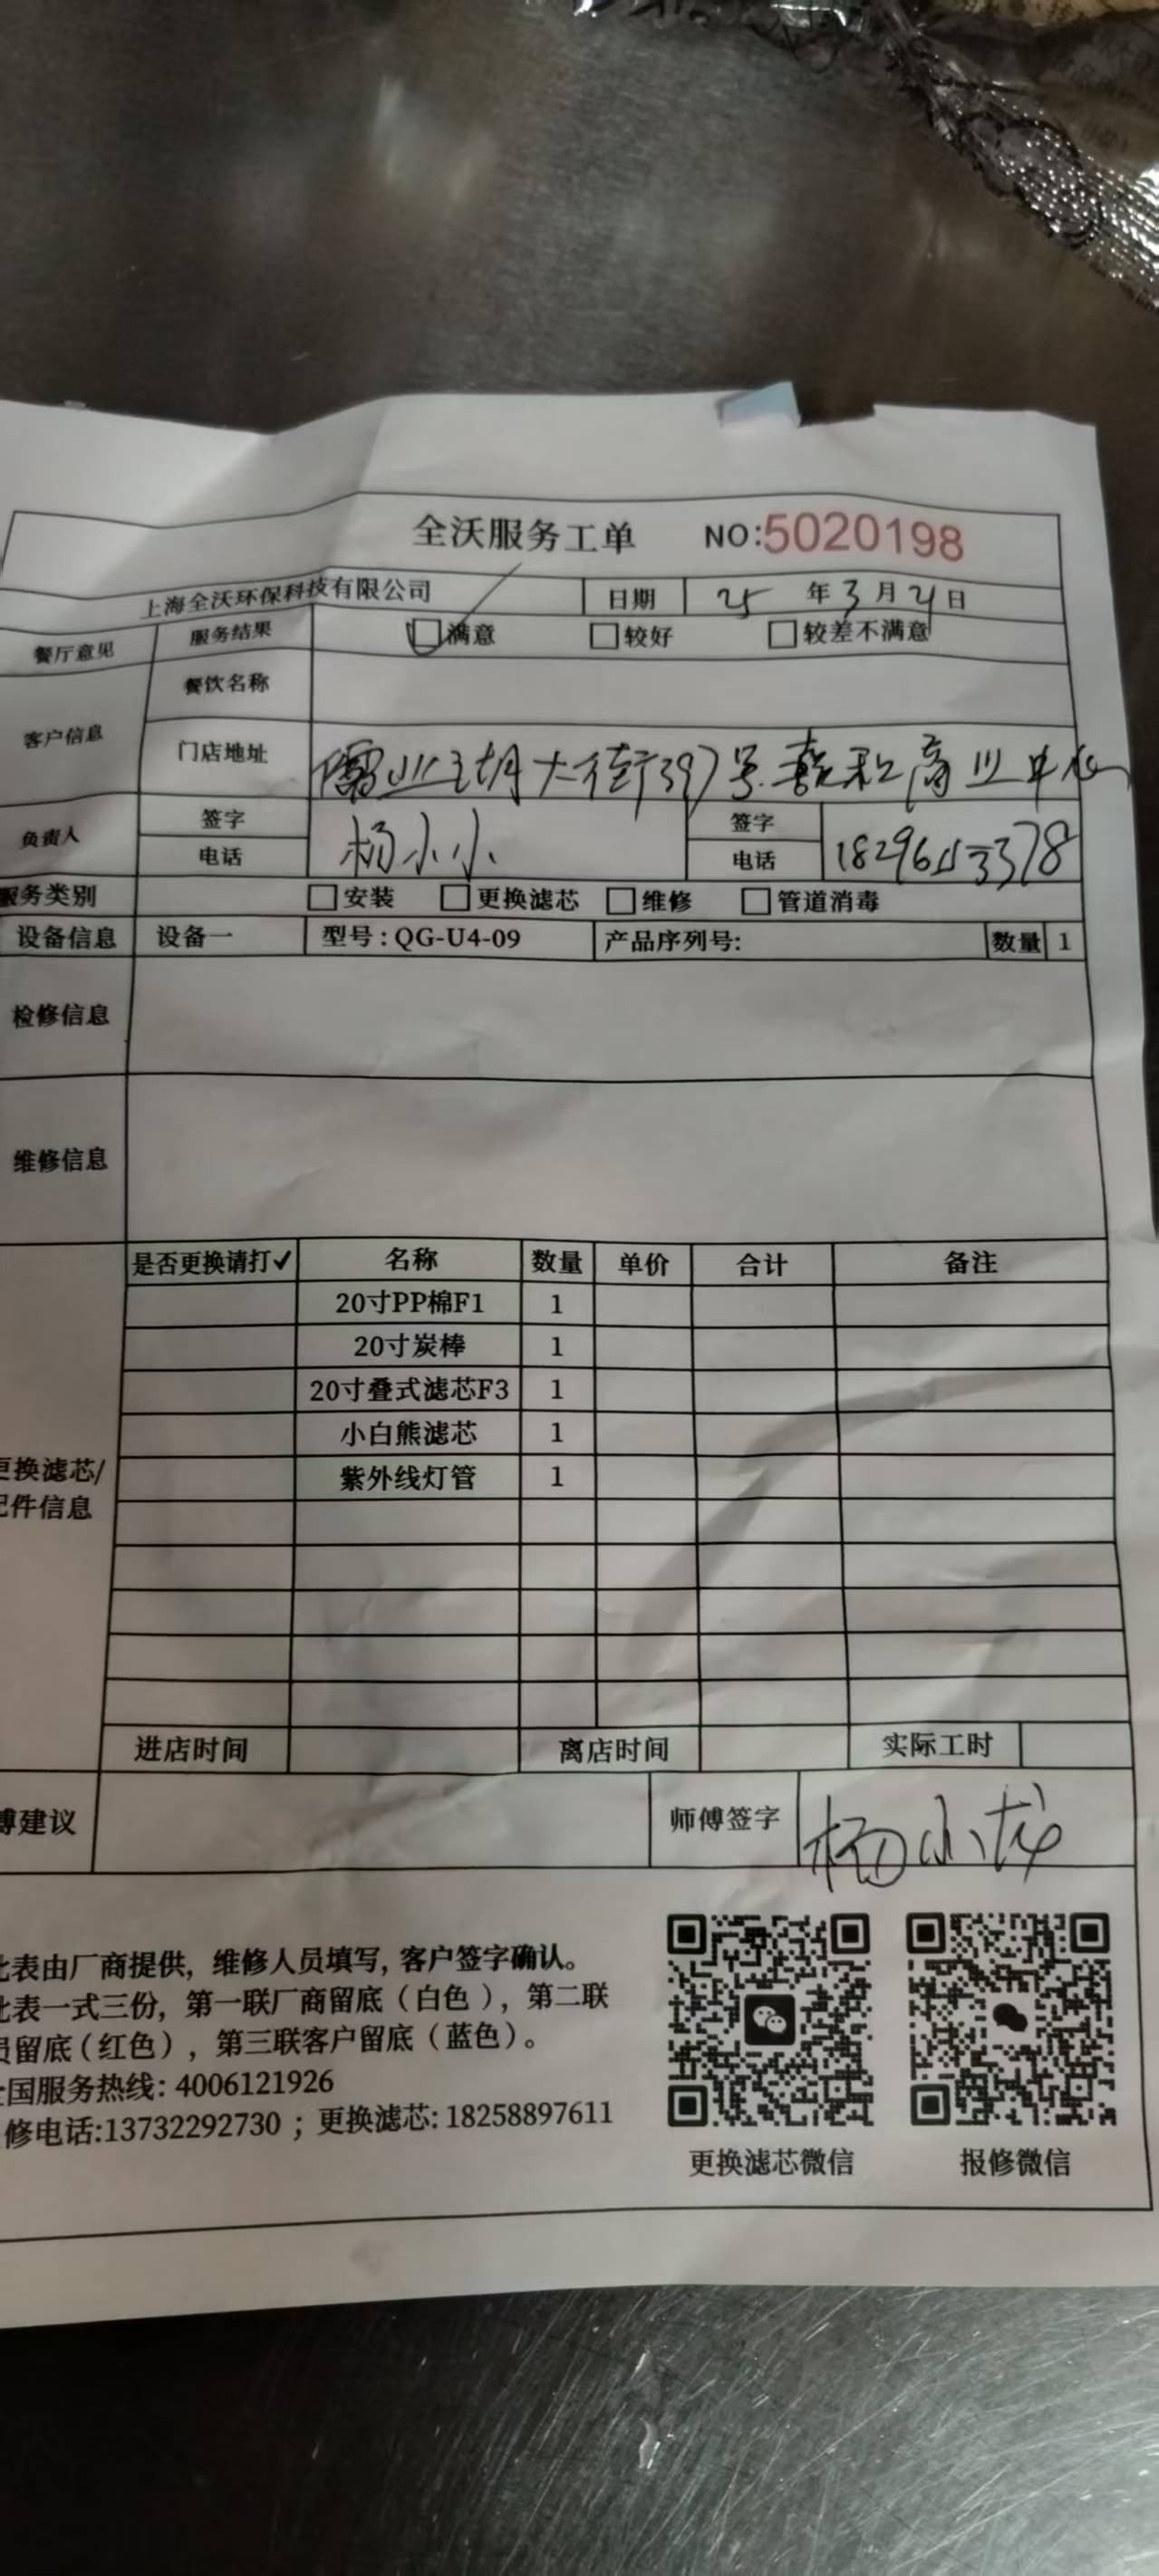 全沃服务工单 NO:5020198
上海全沃环保科技有限公司 日期 25 年 3 月 21 日
餐厅意见 服务结果 满意 较好 较差不满意
客户信息 餐饮名称
门店地址 大街397号 商业中心
负责人 签字 杨小小 签字
电话 电话 18296153378
服务类别 安装 更换滤芯 维修 管道消毒
设备信息 设备一 型号:QG-U4-09 产品序列号: 数量 1
检修信息
维修信息
是否更换请打✓ 名称 数量 单价 合计 备注
20寸PP棉F1 1
20寸炭棒 1
20寸叠式滤芯F3 1
小白熊滤芯 1
紫外线灯管 1
更换滤芯/
配件信息
进店时间 离店时间 实际工时
傅建议 师傅签字 杨小龙
此表由厂商提供, 维修人员填写, 客户签字确认。
此表一式三份, 第一联厂商留底(白色), 第二联
员留底(红色), 第三联客户留底(蓝色)。
全国服务热线: 4006121926
修电话:13732292730 ; 更换滤芯: 18258897611
更换滤芯微信 报修微信